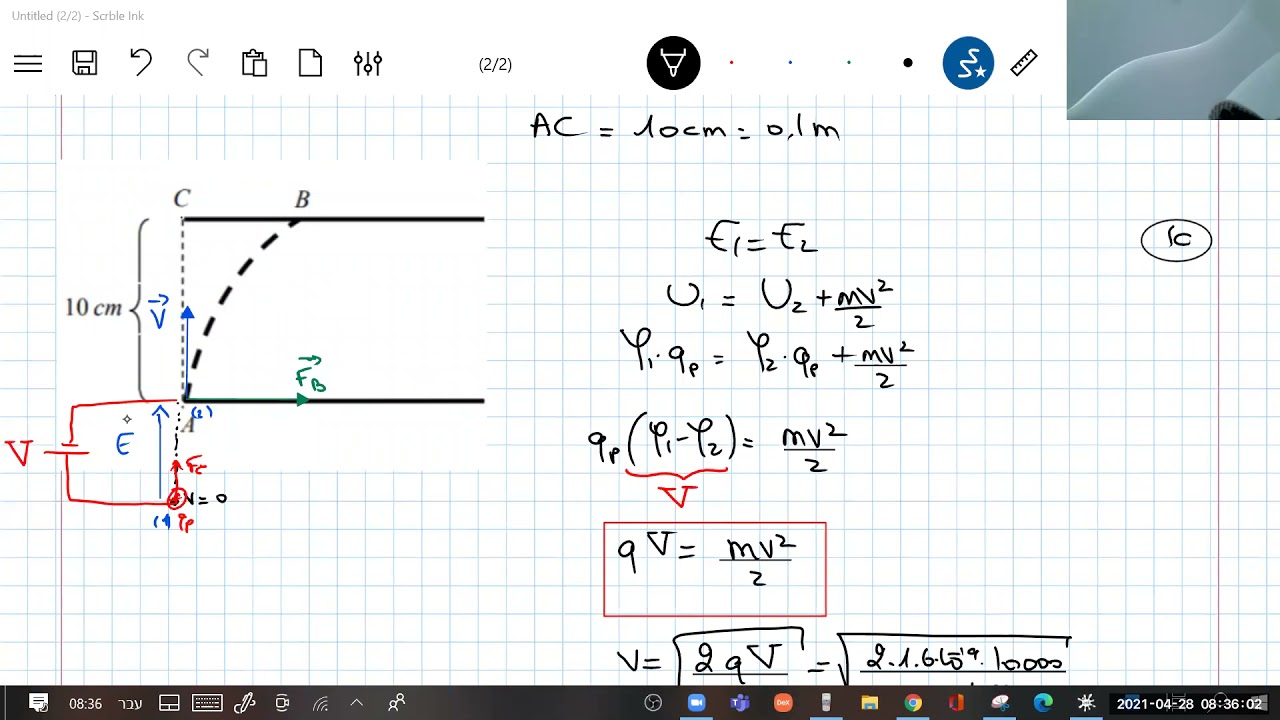 Untitled (2/2) - Scrble Ink
(2/2)
AC = 10cm = 0,1m
C B
10 cm
V
F_B
A (2)
E
V
F_E
V = 0
(1) q_P
1c
E₁ = E₂
U₁ = U₂ + mv²/2
φ₁·q_P = φ₂·q_P + mv²/2
q_P (φ₁-φ₂) = mv²/2
V
qV = mv²/2
V = √2qV = √2·1.6·10⁻¹⁹·10000
08:36
עבר
2021-04-28 08:36:02